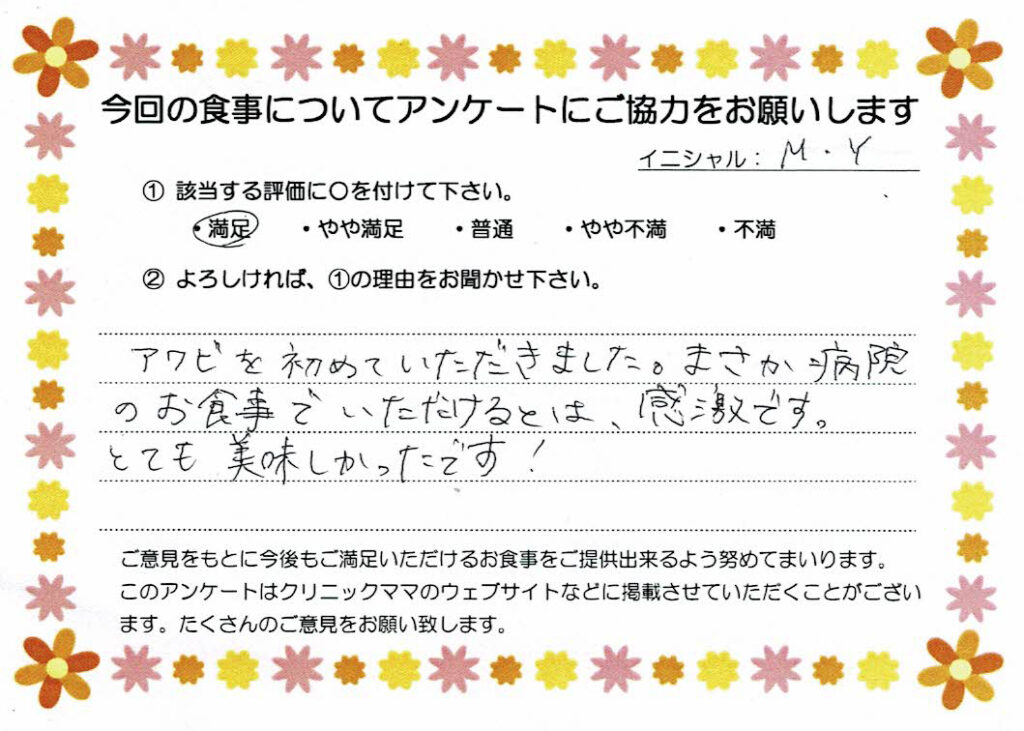 今回の食事についてアンケートにご協力をお願いします
イニシャル： M・Y
① 該当する評価に〇を付けて下さい。
・満足 ・やや満足 ・普通 ・やや不満 ・不満
② よろしければ、①の理由をお聞かせ下さい。
アワビを初めていただきました。まさか病院
のお食事でいただけるとは、感激です。
とても美味しかったです！
ご意見をもとに今後もご満足いただけるお食事をご提供出来るよう努めてまいります。
このアンケートはクリニックママのウェブサイトなどに掲載させていただくことがござい
ます。たくさんのご意見をお願い致します。